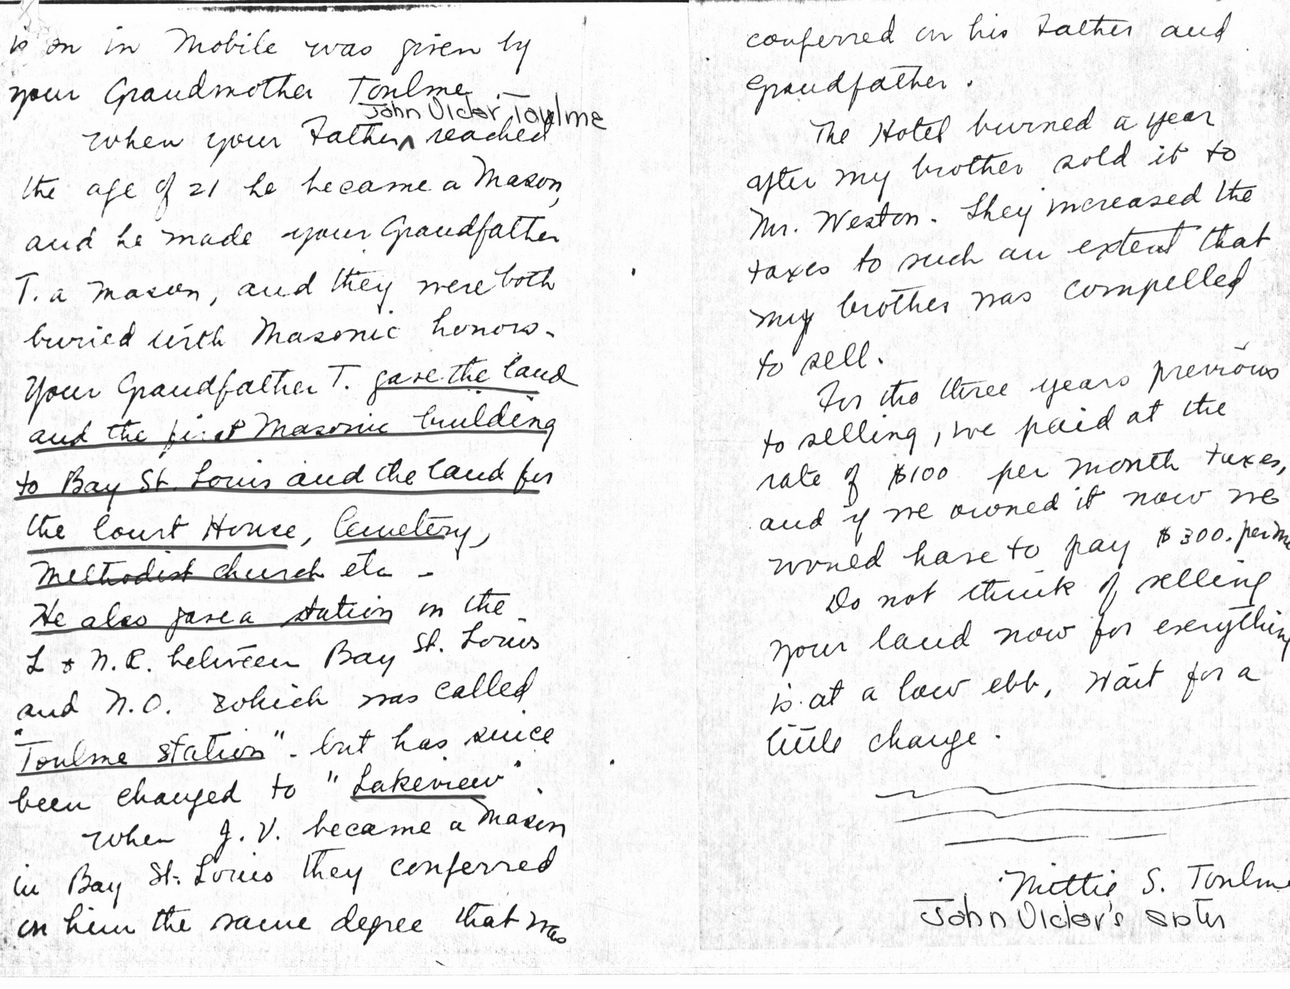 is on in Mobile was given by
your Grandmother Toulme.
John Victor Toulme
When your Father ^ reached
the age of 21 he became a Mason,
and he made your Grandfather
T. a mason, and they were both
buried with Masonic honors.
Your Grandfather T. gave the land
and the first Masonic building
to Bay St. Louis and the land for
the Court House, Cemetery,
Methodist church etc -
He also gave a station on the
L & N.R. between Bay St. Louis
and N.O. which was called
"Toulme Station" - but has since
been changed to "Lakeview".
When J. V. became a Mason
in Bay St. Louis they conferred
on him the same degree that was
conferred on his Father and
Grandfather.
The Hotel burned a year
after my brother sold it to
Mr. Weston. They increased the
taxes to such an extent that
my brother was compelled
to sell.
For the three years previous
to selling, we paid at the
rate of $100 per month taxes,
and if we owned it now we
would have to pay $300. per mo
Do not think of selling
your land now for everything
is at a low ebb, wait for a
little change.
Mittie S. Toulme
John Victor's sister